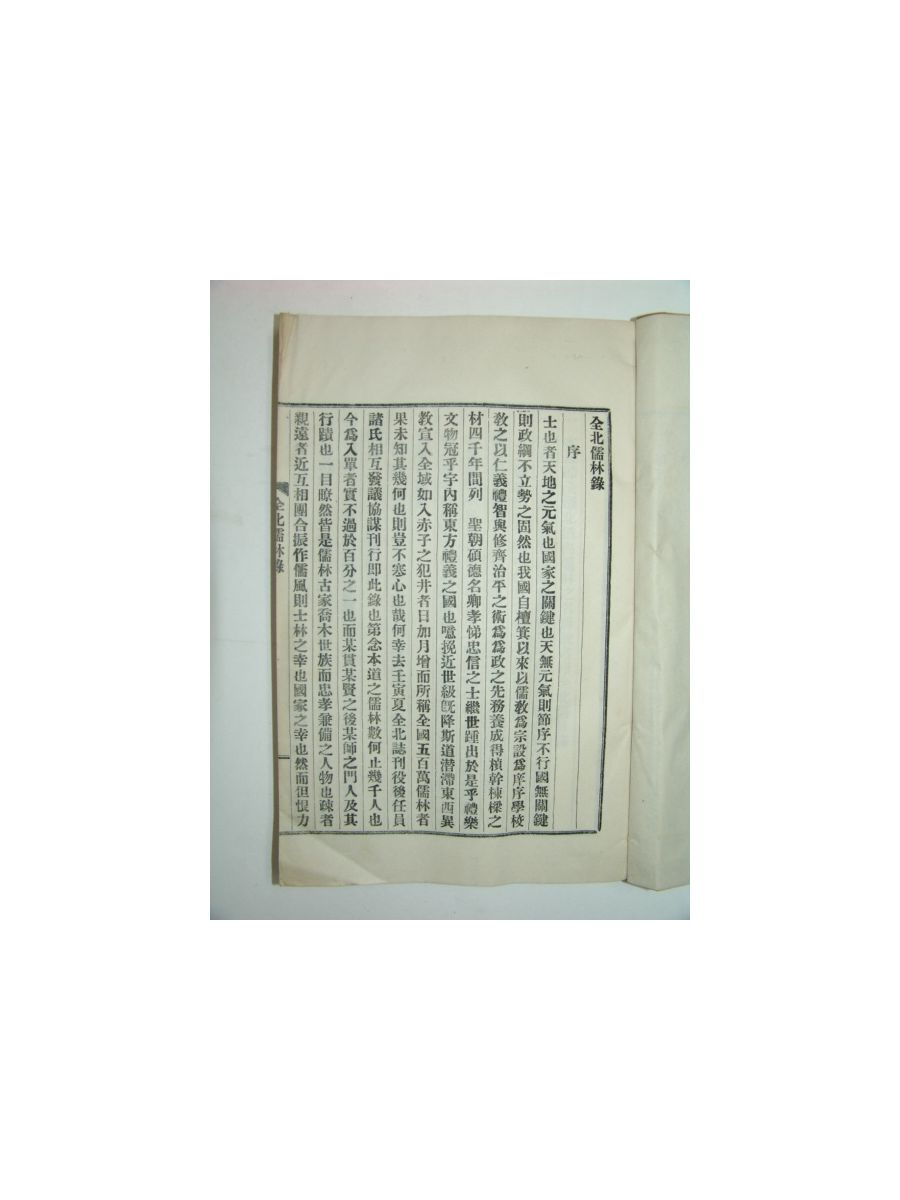 全北儒林錄
序
士也者天地之元氣也國家之關鍵也天無元氣則節序不行國無關鍵
則政綱不立勢之固然也我國自檀箕以來以儒教爲宗設爲庠序學校
敎之以仁義禮智與修齊治平之術爲爲政之先務養成得楨幹棟樑之
材四千年間列　聖朝碩德名卿孝悌忠信之士繼世踵出於是乎禮樂
文物冠乎宇內稱東方禮義之國也噫挽近世級旣降斯道潛滯東西異
敎宣入全域如入赤子之犯井者日加月增而所稱全國五百萬儒林者
果未知其幾何也則豈不寒心也哉何幸去壬寅夏全北誌刊役後任員
諸氏相互發議協謀刊行即此錄也第念本道之儒林數何止幾千人也
今爲入單者實不過於百分之一也而某貫某賢之後某師之門人及其
行蹟也一目瞭然皆是儒林古家喬木世族而忠孝兼備之人物也疎者
親遠者近互相團合振作儒風則士林之幸也國家之幸也然而但恨力
全北儒林錄